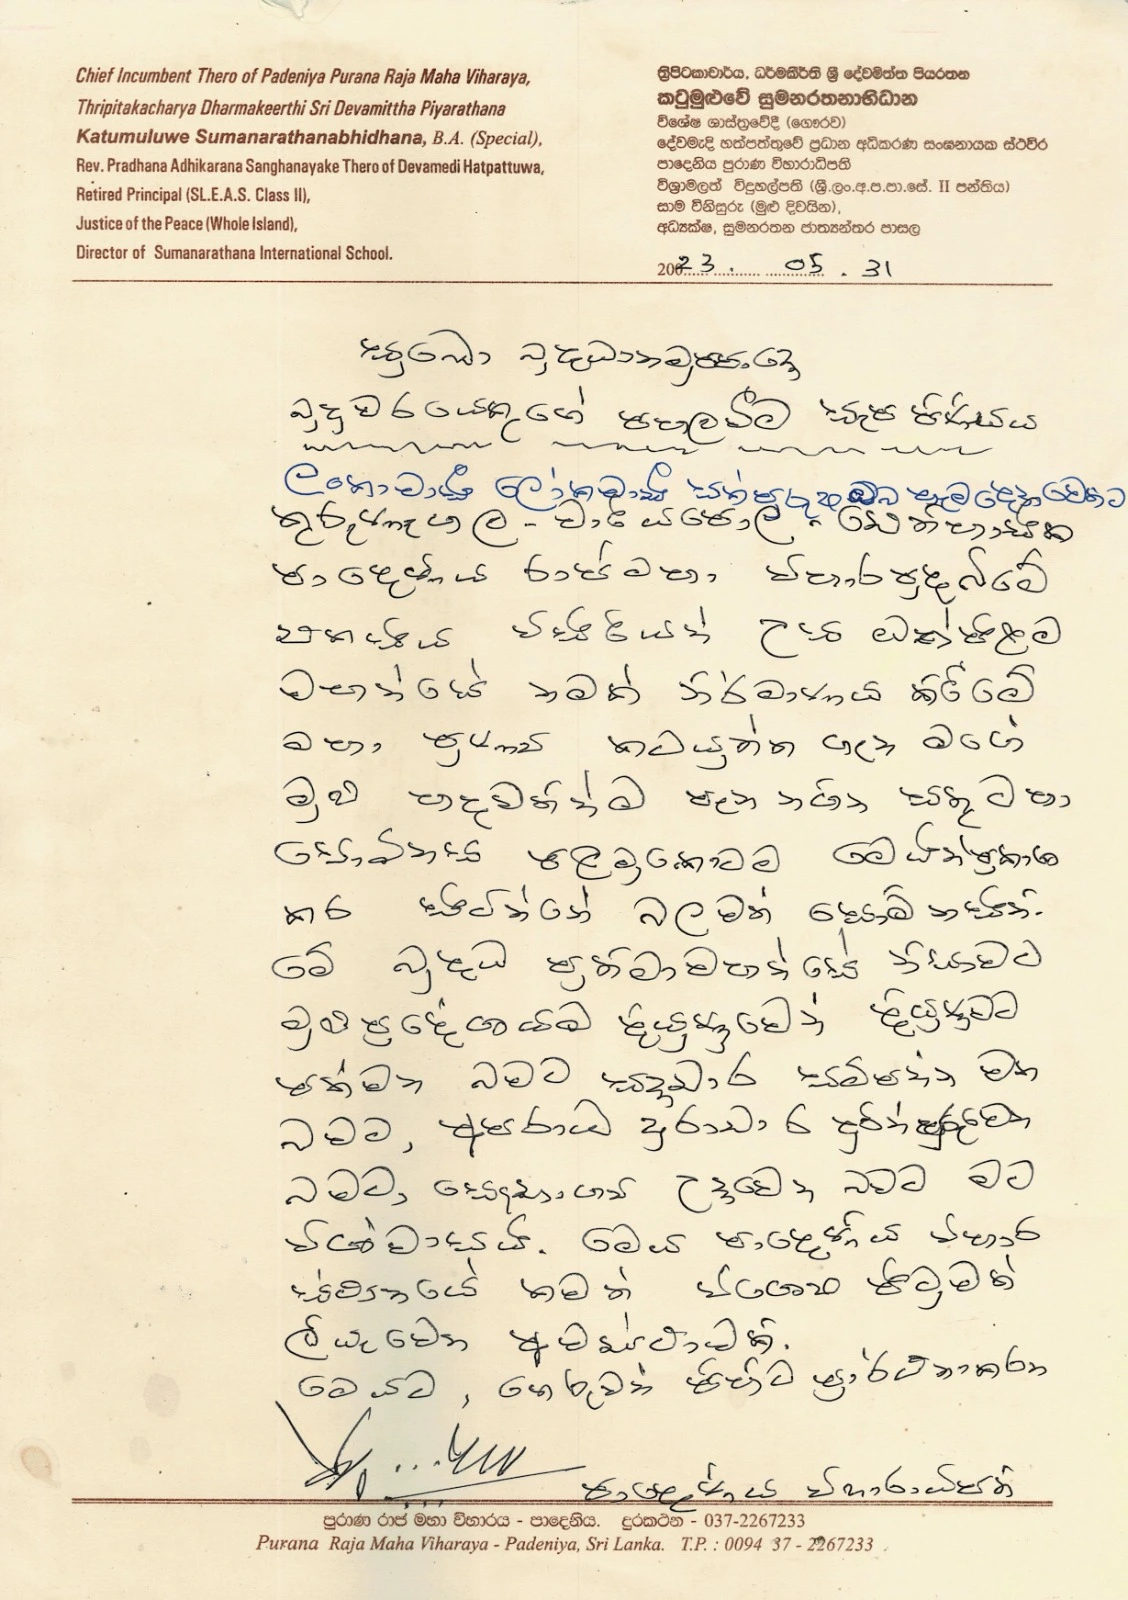 Chief Incumbent Thero of Padeniya Purana Raja Maha Viharaya,
Thripitakacharya Dharmakeerthi Sri Devamittha Piyarathana
Katumuluwe Sumanarathanabhidhana, B.A. (Special),
Rev. Pradhana Adhikarana Sanghanayake Thero of Devamedi Hatpattuwa,
Retired Principal (SL.E.A.S. Class II),
Justice of the Peace (Whole Island),
Director of Sumanarathana International School.
ත්‍රිපිටකාචාර්ය, ධර්මකීර්ති ශ්‍රී දේවමිත්ත පියරතන
කටුමුළුවේ සුමනරතනාභිධාන
විශේෂ ශාස්ත්‍රවේදී (ගෞරව)
දේවමැදි හත්පත්තුවේ ප්‍රධාන අධිකරණ සංඝනායක ස්ථවිර
පාදෙනිය පුරාණ විහාරාධිපති
විශ්‍රාමලත් විදුහල්පති (ශ්‍රී.ලං.අ.ප.පා.සේ. II පන්තිය)
සාම විනිසුරු (මුළු දිවයින),
අධ්‍යක්ෂ, සුමනරතන ජාත්‍යන්තර පාසල
200 23 . 05 . 31
සුඛො බුද්ධානමුප්පාදො
බුදුවරයෙකුගේ පහලවීම සැප පිණිසය
ලංකාවාසී ලෝකවාසී සත්පුරුෂ ඔබ සැම දෙනා වෙතට
කුරුණෑගල - වාරියපොල - ඓතිහාසික
පාදෙණිය රාජමහා විහාරපුදබිමේ
විසිරියන් උස
වහන්සේ නමක් නිර්මාණය කිරීමේ
මහා පුණ්‍ය කටයුත්ත ගැන මගේ
මුළු හදවතින්ම පැන නගින සතුට හා
සොම්නස පළමුකොටම මෙයින් ප්‍රකාශ
කර සිටින්නේ බලවත් සොම්නසින්.
මේ බුද්ධ ප්‍රතිමා වහන්සේ නිසාවට
මුළු ප්‍රදේශයම දියුණුවෙන් දියුණුවට
පත්වන බවට සදාචාර සම්පන්න වන
බවට, අපරාධ දුරාචාර දුරින් දුරුවෙන
බවටා, සෞභාග්‍ය උදාවෙන බවට මට
විශ්වාසයි. මෙය පාදෙණිය විහාර
ස්ථානයේ තවත් විශේෂ පිටුවක්
ලියැවෙන අවස්ථාවක්.
මෙයට, තෙරුවන් පිහිට ප්‍රාර්ථනා කරන
පාදෙණිය විහාරාධිපති
පුරාණ රාජ මහා විහාරය - පාදෙනිය. දුරකථන - 037-2267233
Purana Raja Maha Viharaya - Padeniya, Sri Lanka. T.P. : 0094 37 - 2267233